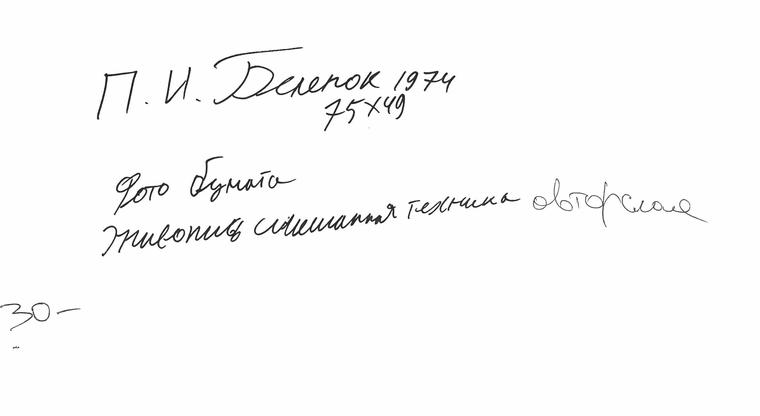 П. И. Беленок 1974
75х49
Фото бумага
Живопись смешанная техника авторская
30-